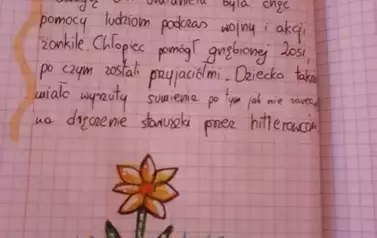 była chęć
pomocy ludziom podczas wojny i akcji
żonkile. Chłopiec pomógł gnębionej Zosi,
po czym zostali przyjaciółmi. Dziecko także
miało wyrzuty sumienia po tym jak nie
na dręczenie staruszki przez hitlerowców